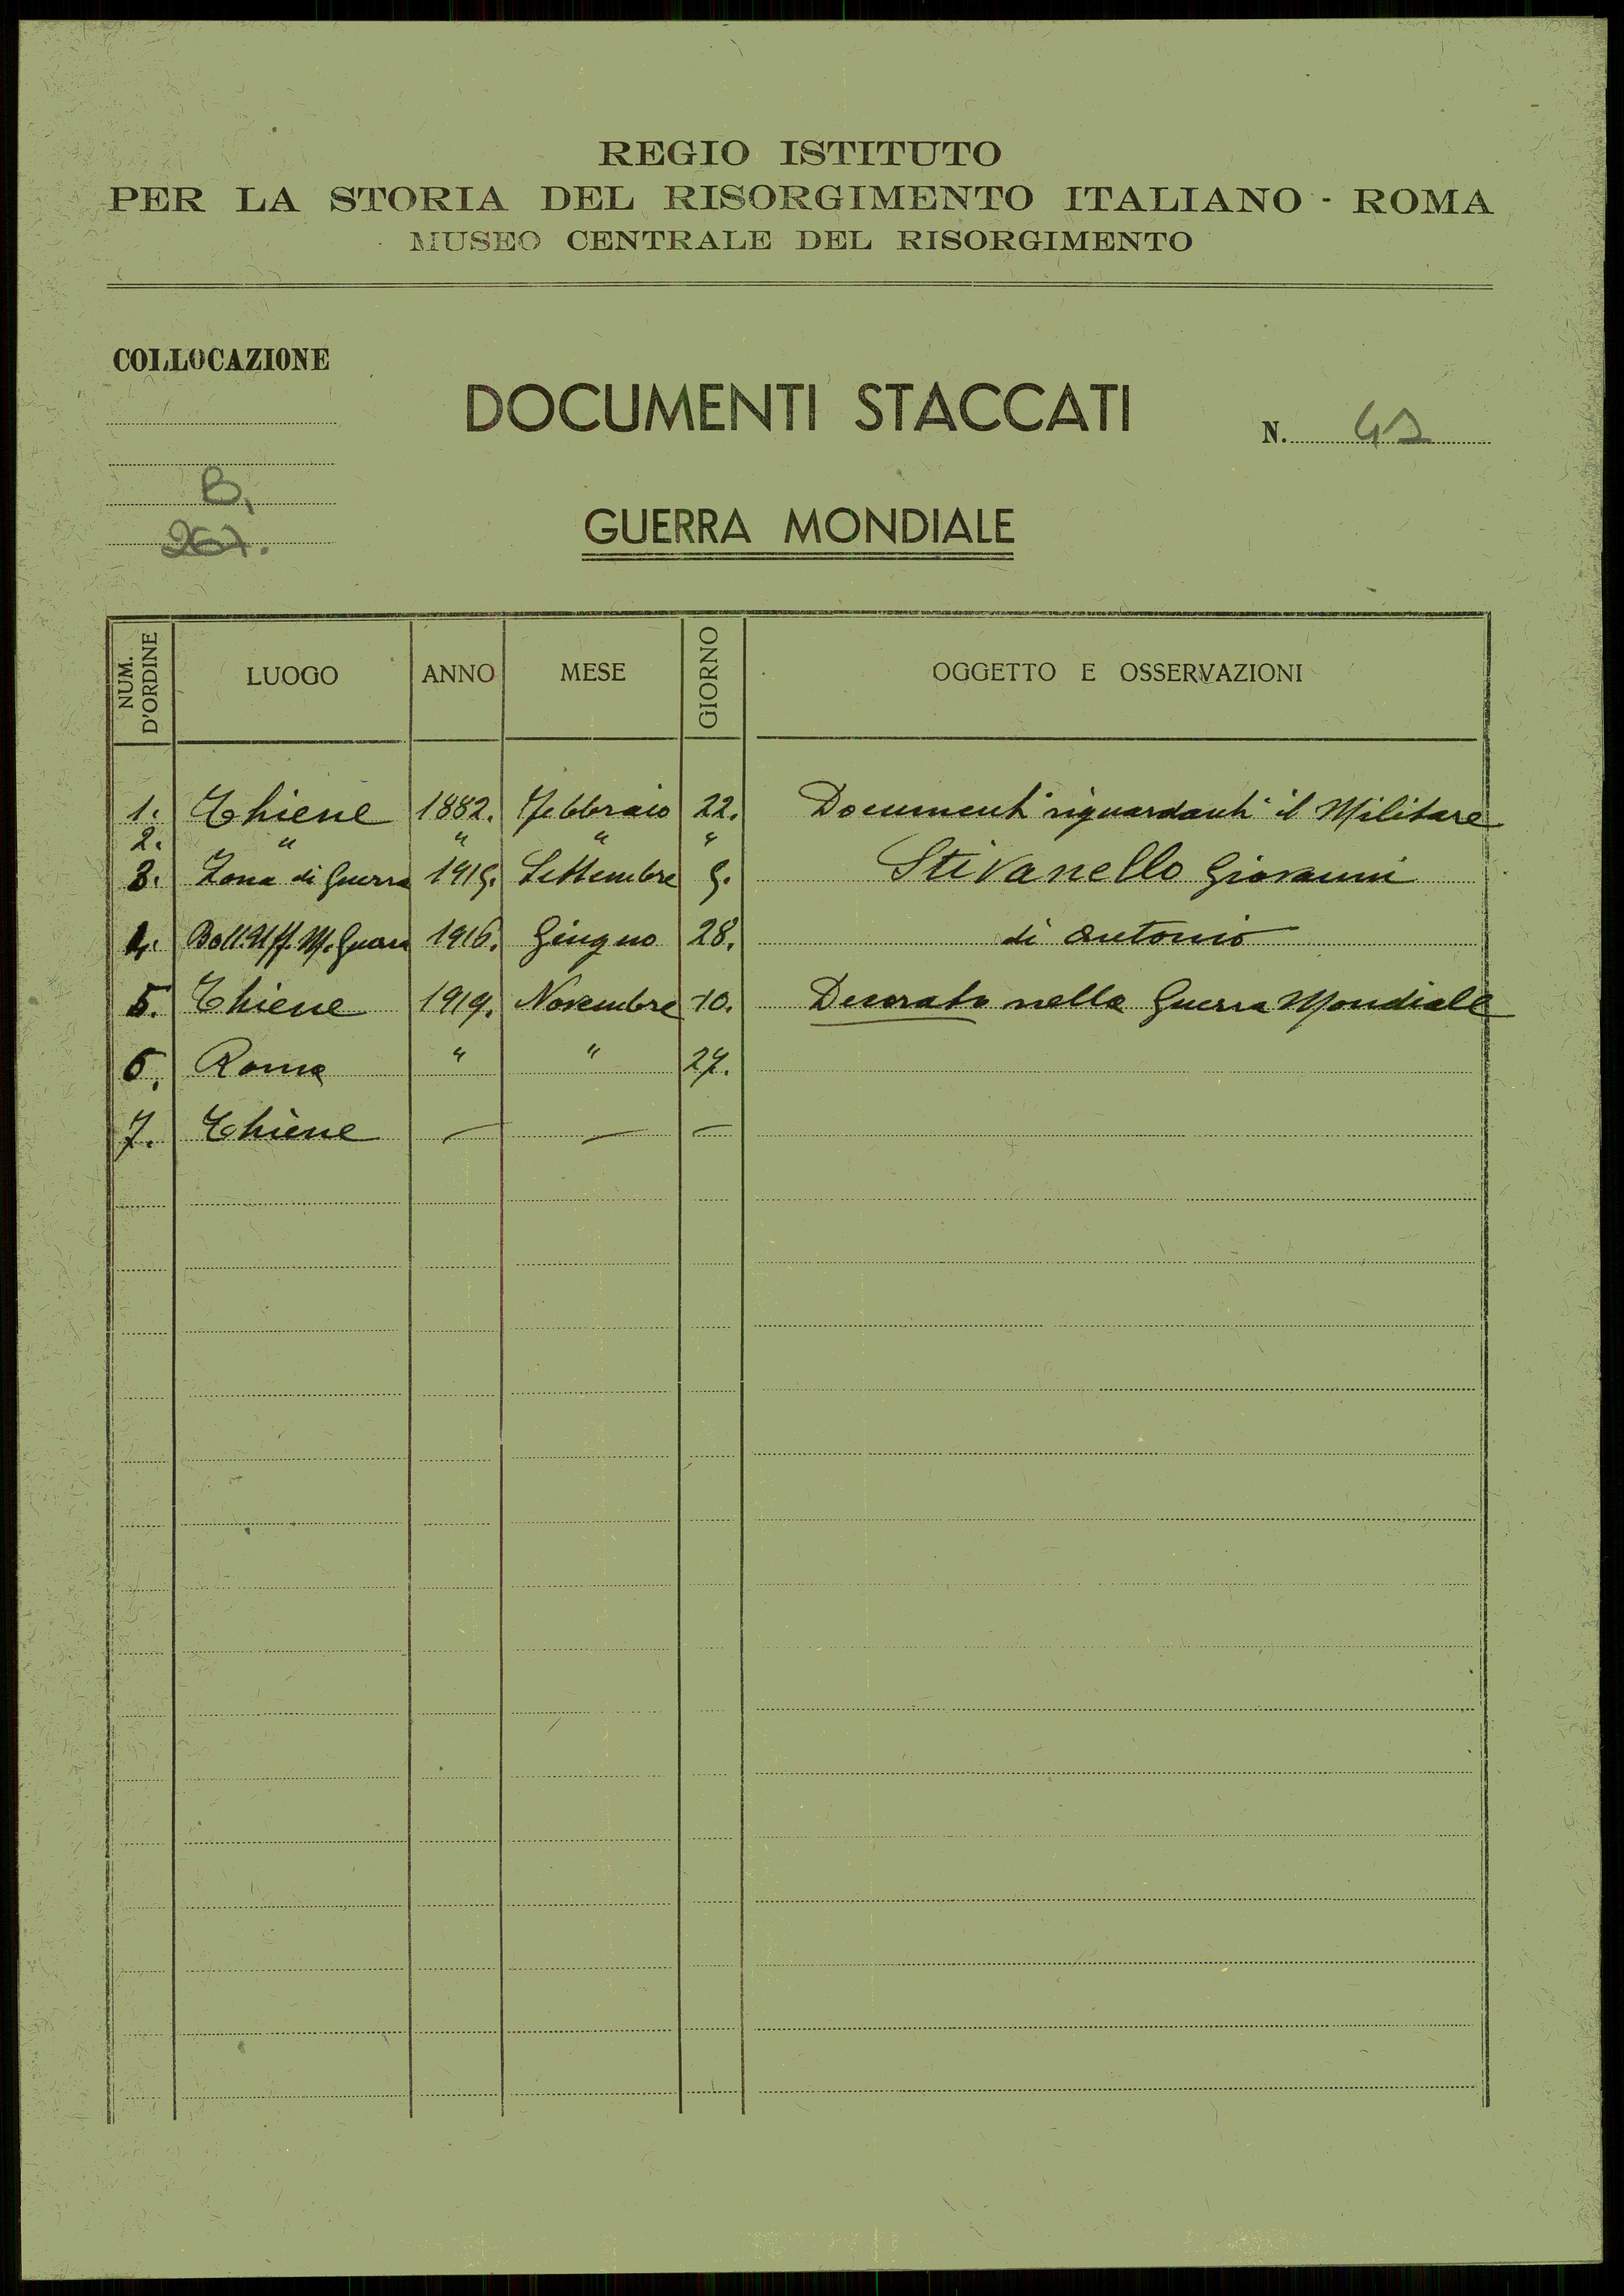 REGIO ISTITUTO
PER LA STORIA DEL RISORGIMENTO ITALIANO - ROMA
MUSEO CENTRALE DEL RISORGIMENTO
COLLOCAZIONE
DOCUMENTI STACCATI
N.
B,
267.
GUERRA MONDIALE
NUM. D'ORDINE LUOGO ANNO MESE GIORNO OGGETTO E OSSERVAZIONI
1. Thiene 1882. Febbraio 22. Documenti riguardanti il Militare
2. " " " "
3. Zona di Guerra 1915. Settembre 9. Stivanello Giovanni
4. Boll. Uff. M. Guerra 1916. Giugno 28. di Antonio
5. Thiene 1919. Novembre 10. Decorato nella Guerra Mondiale
6. Roma " " 27.
7. Thiene — — —